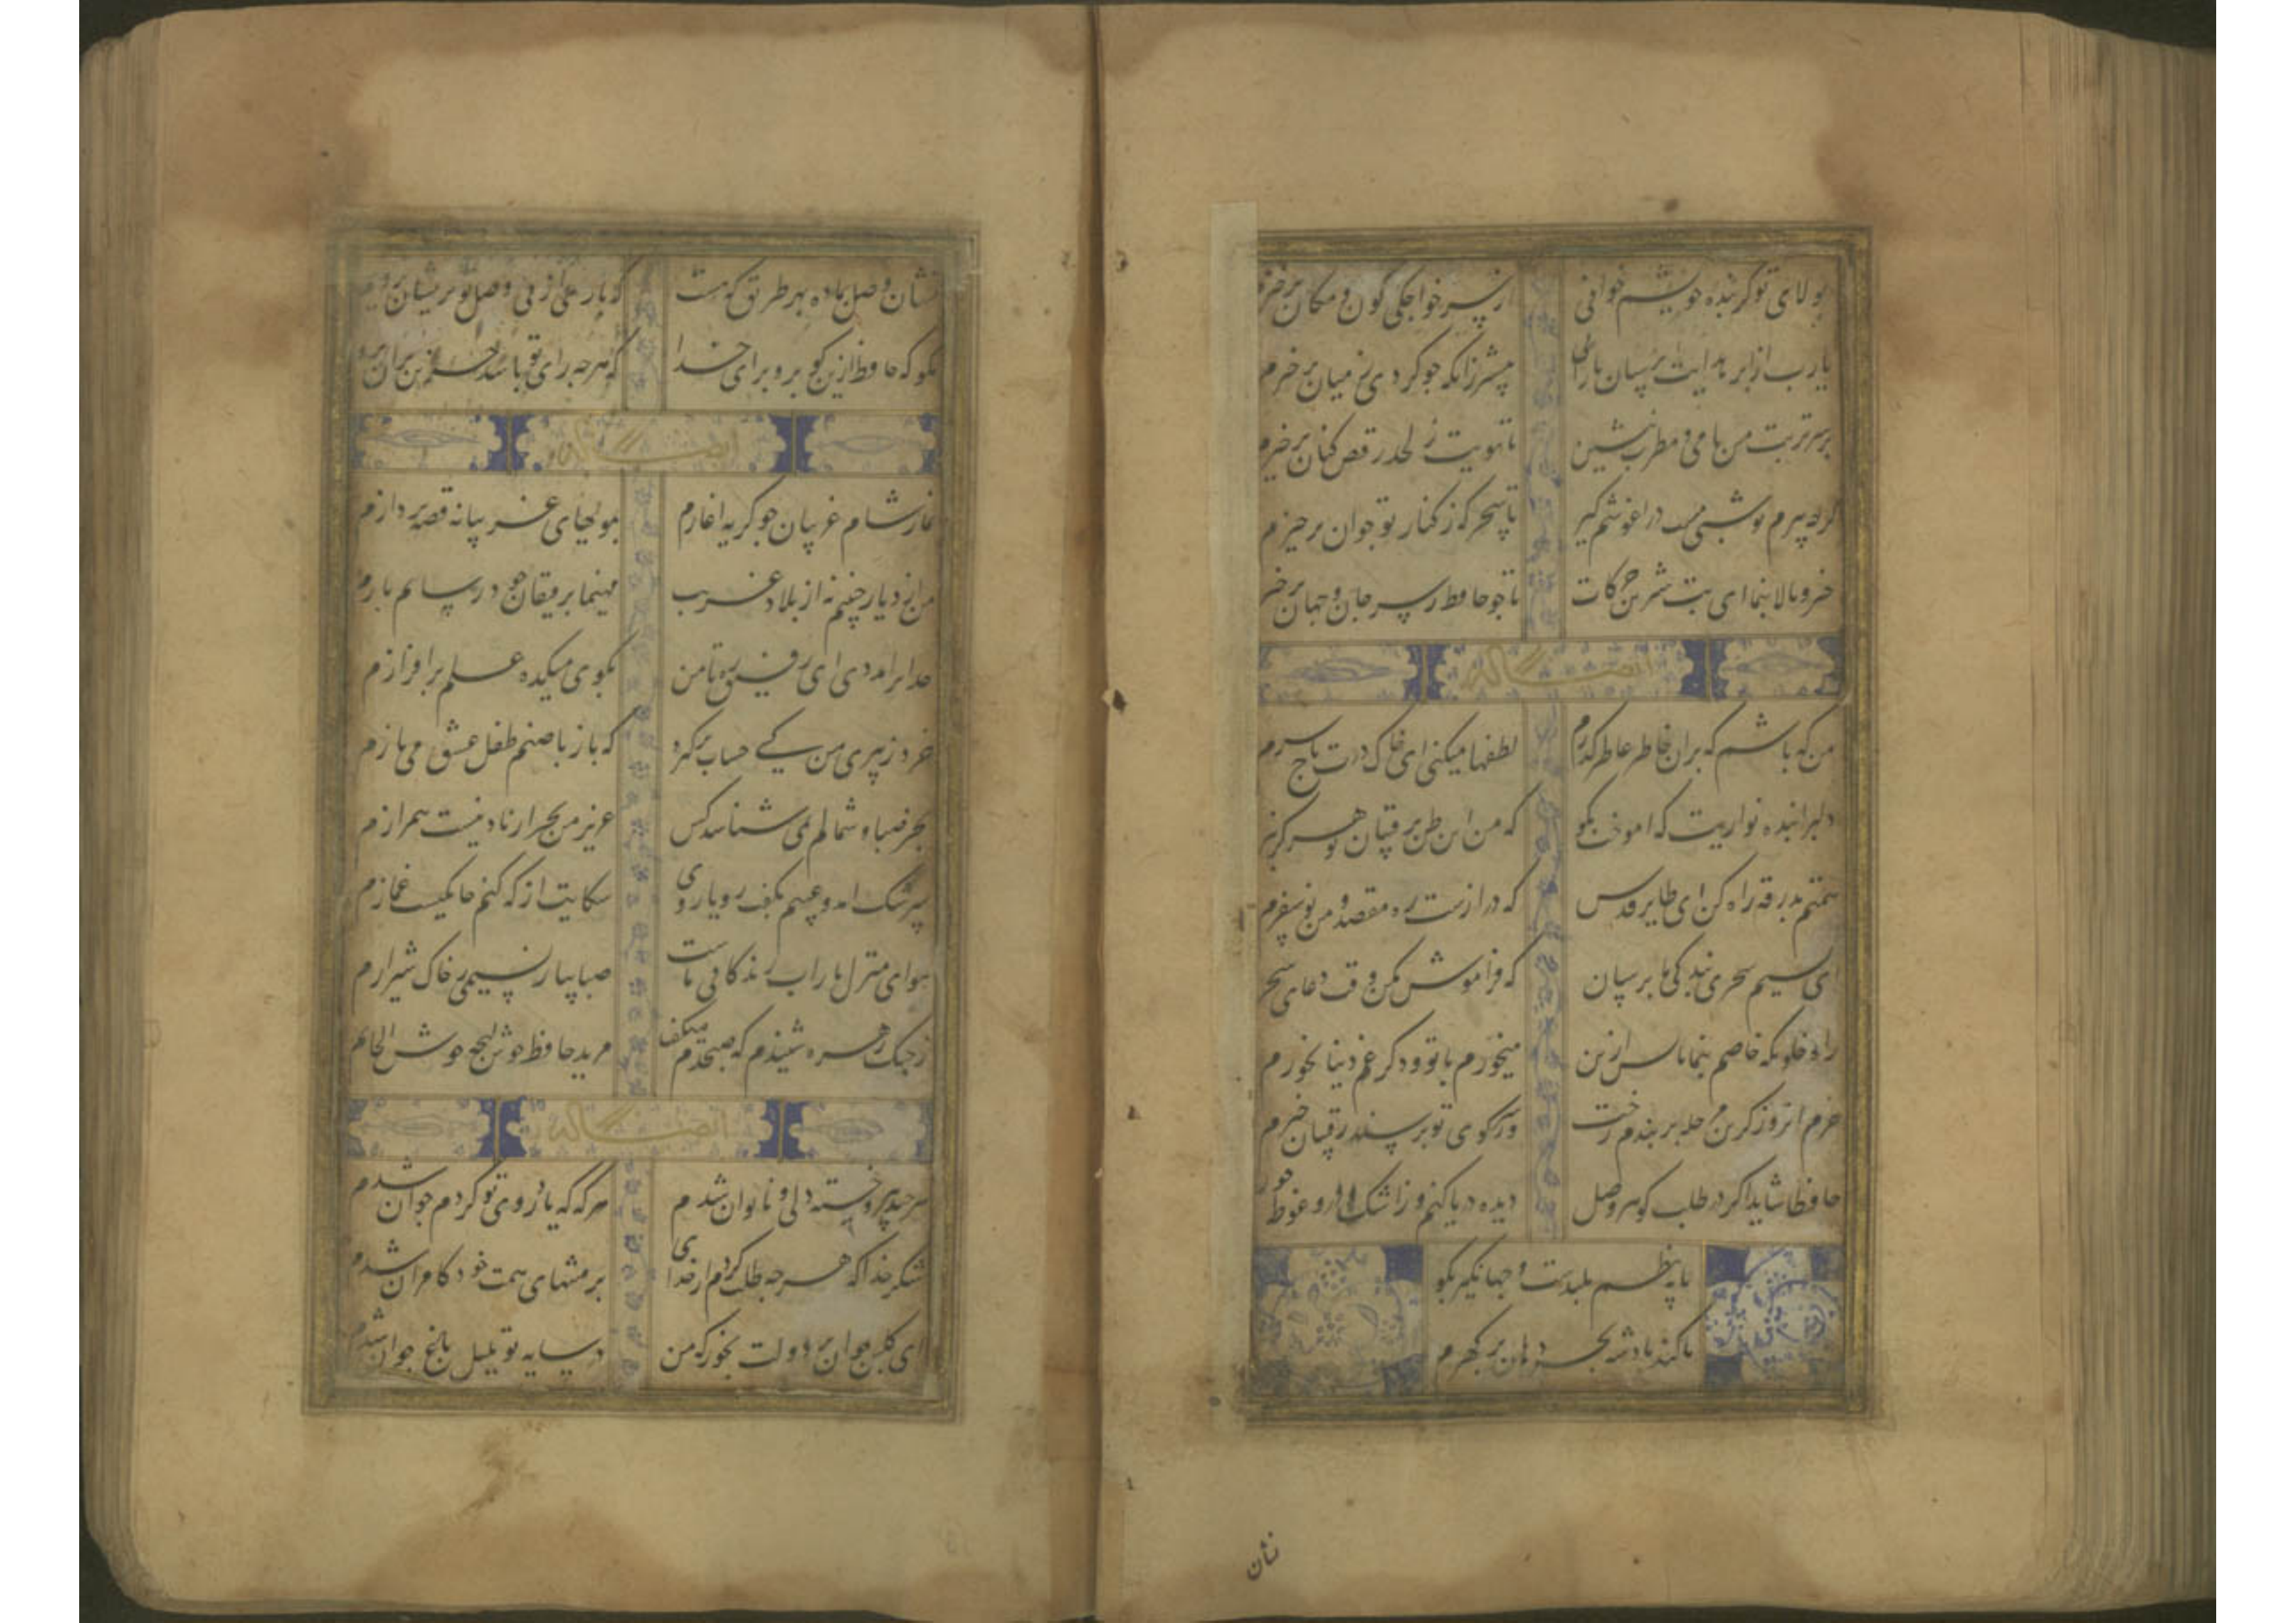 بولای تو کر بنده خویشم خوانی از سر خواجکی کون و مکان برخیزم
یارب از ابر هدایت برسان بارانی پیشتر زانکه جو کردی ز میان برخیزم
بر سر تربت من با می و مطرب بنشین تا ببویت ز لحد رقص کنان برخیزم
کرجه پیرم تو شبی تنک در اغوشم کیر تا سحر که ز کنار تو جوان برخیزم
خیز و بالا بنما ای بت شیرین حرکات تا جو حافظ ز سر جان و جهان برخیزم
ایضا له
من که باشم که بران خاطر عاطر کذرم لطفها میکنی ای خاک درت تاج سرم
دلبرا بنده نوازیت که اموخت بکو که من این ظن برقیبان تو هرکز نبرم
همتم بدرقه راه کن ای طایر قدس که درازست ره مقصد و من نو سفرم
ای نسیم سحری بندکی ما برسان که فراموش مکن وقت دعای سحرم
راه خلوتکه خاصم بنما تا بس ازین میخورم با تو و دکر غم دنیا نخورم
خرم انروز کزین مرحله بربندم رخت وز سر کوی تو برسند رقیبان خبرم
حافظا شاید اکر در طلب کوهر وصل دیده دریا کنم وز اشک و درو غوطه خورم
پایه نظم بلندست و جهانکیر بکو
تا کند پادشه بحر دهان پر کهرم
نشان
نشان وصل بما ده بهر طریق که هست که باری از پی وصل تو بر نشان بروم
بکو که حافظ ازین کو برو برای خدا که هرجه رای تو باشد جز این بران بروم
ایضا له
نماز شام غریبان جو کریه اغازم بمویهای غریبانه قصه پردازم
من از دیار حبیبم نه از بلاد غریب مهیمنا برفیقان خود رسان بازم
خدایرا مددی ای رفیق ره تا من بکوی میکده علم برافرازم
خرد ز پیری من کی حساب برکیرد که باز با صنم طفل عشق می بازم
بجز صبا و شمالم نمی شناسد کس عزیز من بجز از باد نیست همرازم
سرشک امد و عیبم بکفت روی بروی شکایت از که کنم خانکیست غمازم
هوای منزل یار اب زندکانی ماست صبا بیار نسیمی ز خاک شیرازم
ز جنک زهره شنیدم که صبحدم میکفت مرید حافظ خوش لهجه خوش الحانم
ایضا له
هرجند پیر و خسته دل و ناتوان شدم هر که که یاد روی تو کردم جوان شدم
شکر خدا که هرجه طلب کردم از خدای بر منتهای همت خود کامران شدم
ای کلبن جوان بر دولت بخور که من در سایه تو بلبل باغ جوان شدم